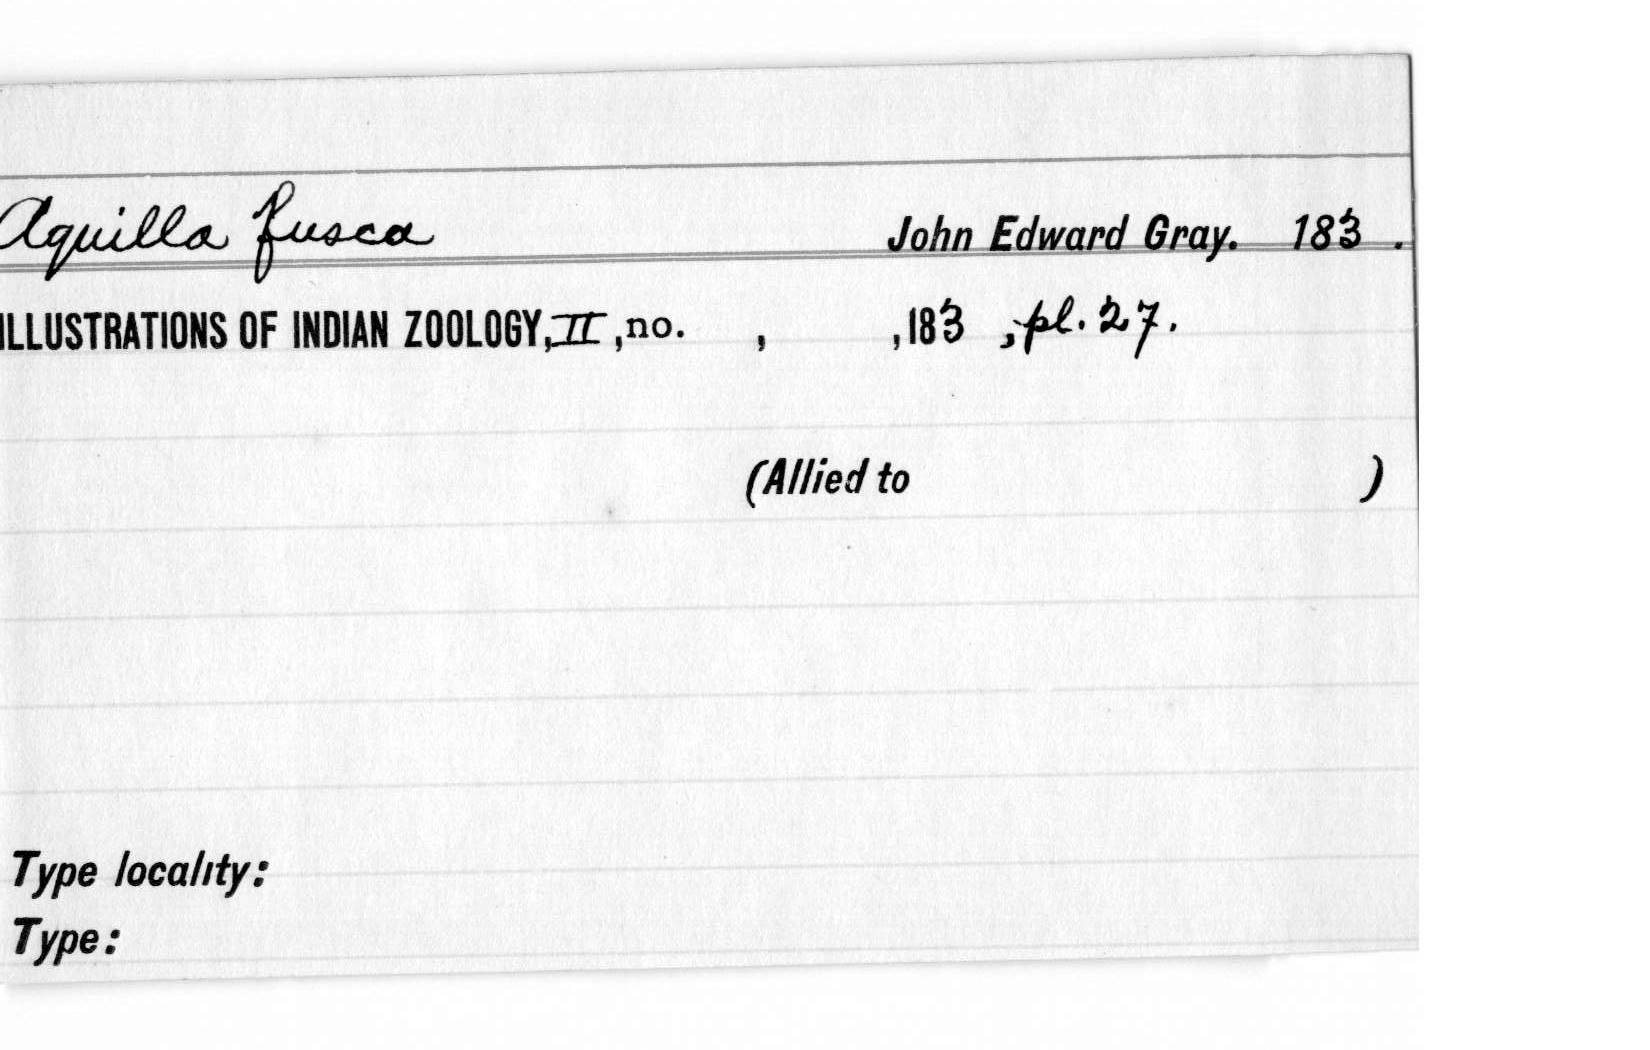 Aquilla fusca John Edward Gray. 183 .
ILLUSTRATIONS OF INDIAN ZOOLOGY, II , no. , , 183 , pl. 27.
(Allied to )
Type locality:
Type: